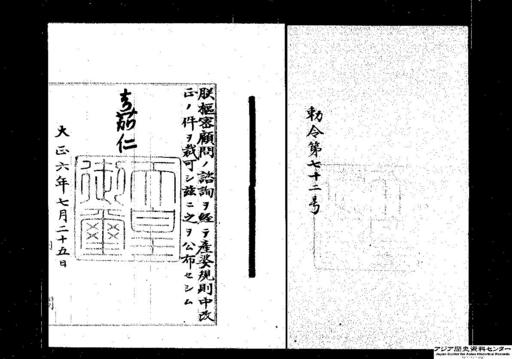 勅令第七十二号
朕枢密顧問ノ諮詢ヲ経テ産婆規則中改
正ノ件ヲ裁可シ茲ニ之ヲ公布セシム
嘉仁
天皇
御璽
大正六年七月二十五日
アジア歴史資料センター
Japan Center for Asian Historical Records